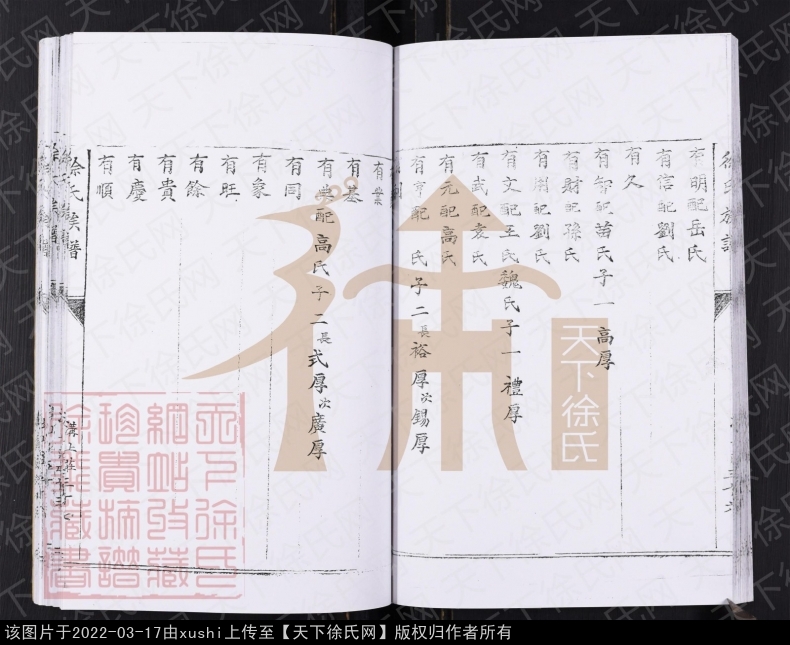 徐氏族譜
有明配岳氏
有信配劉氏
有久
有智配苗氏子一 高厚
有財配孫氏
有用配劉氏
有文配王氏魏氏子一 禮厚
有武配袁氏
有元配高氏
有亨配 氏子二長裕厚次錫厚
有業
有基
有崇配高氏子二長式厚次廣厚
有同
有象
有旺
有餘
有貴
有慶
有順
徐氏族譜
溝上莊
天下徐氏
天下徐氏網
该图片于2022-03-17由xushi上传至【天下徐氏网】版权归作者所有